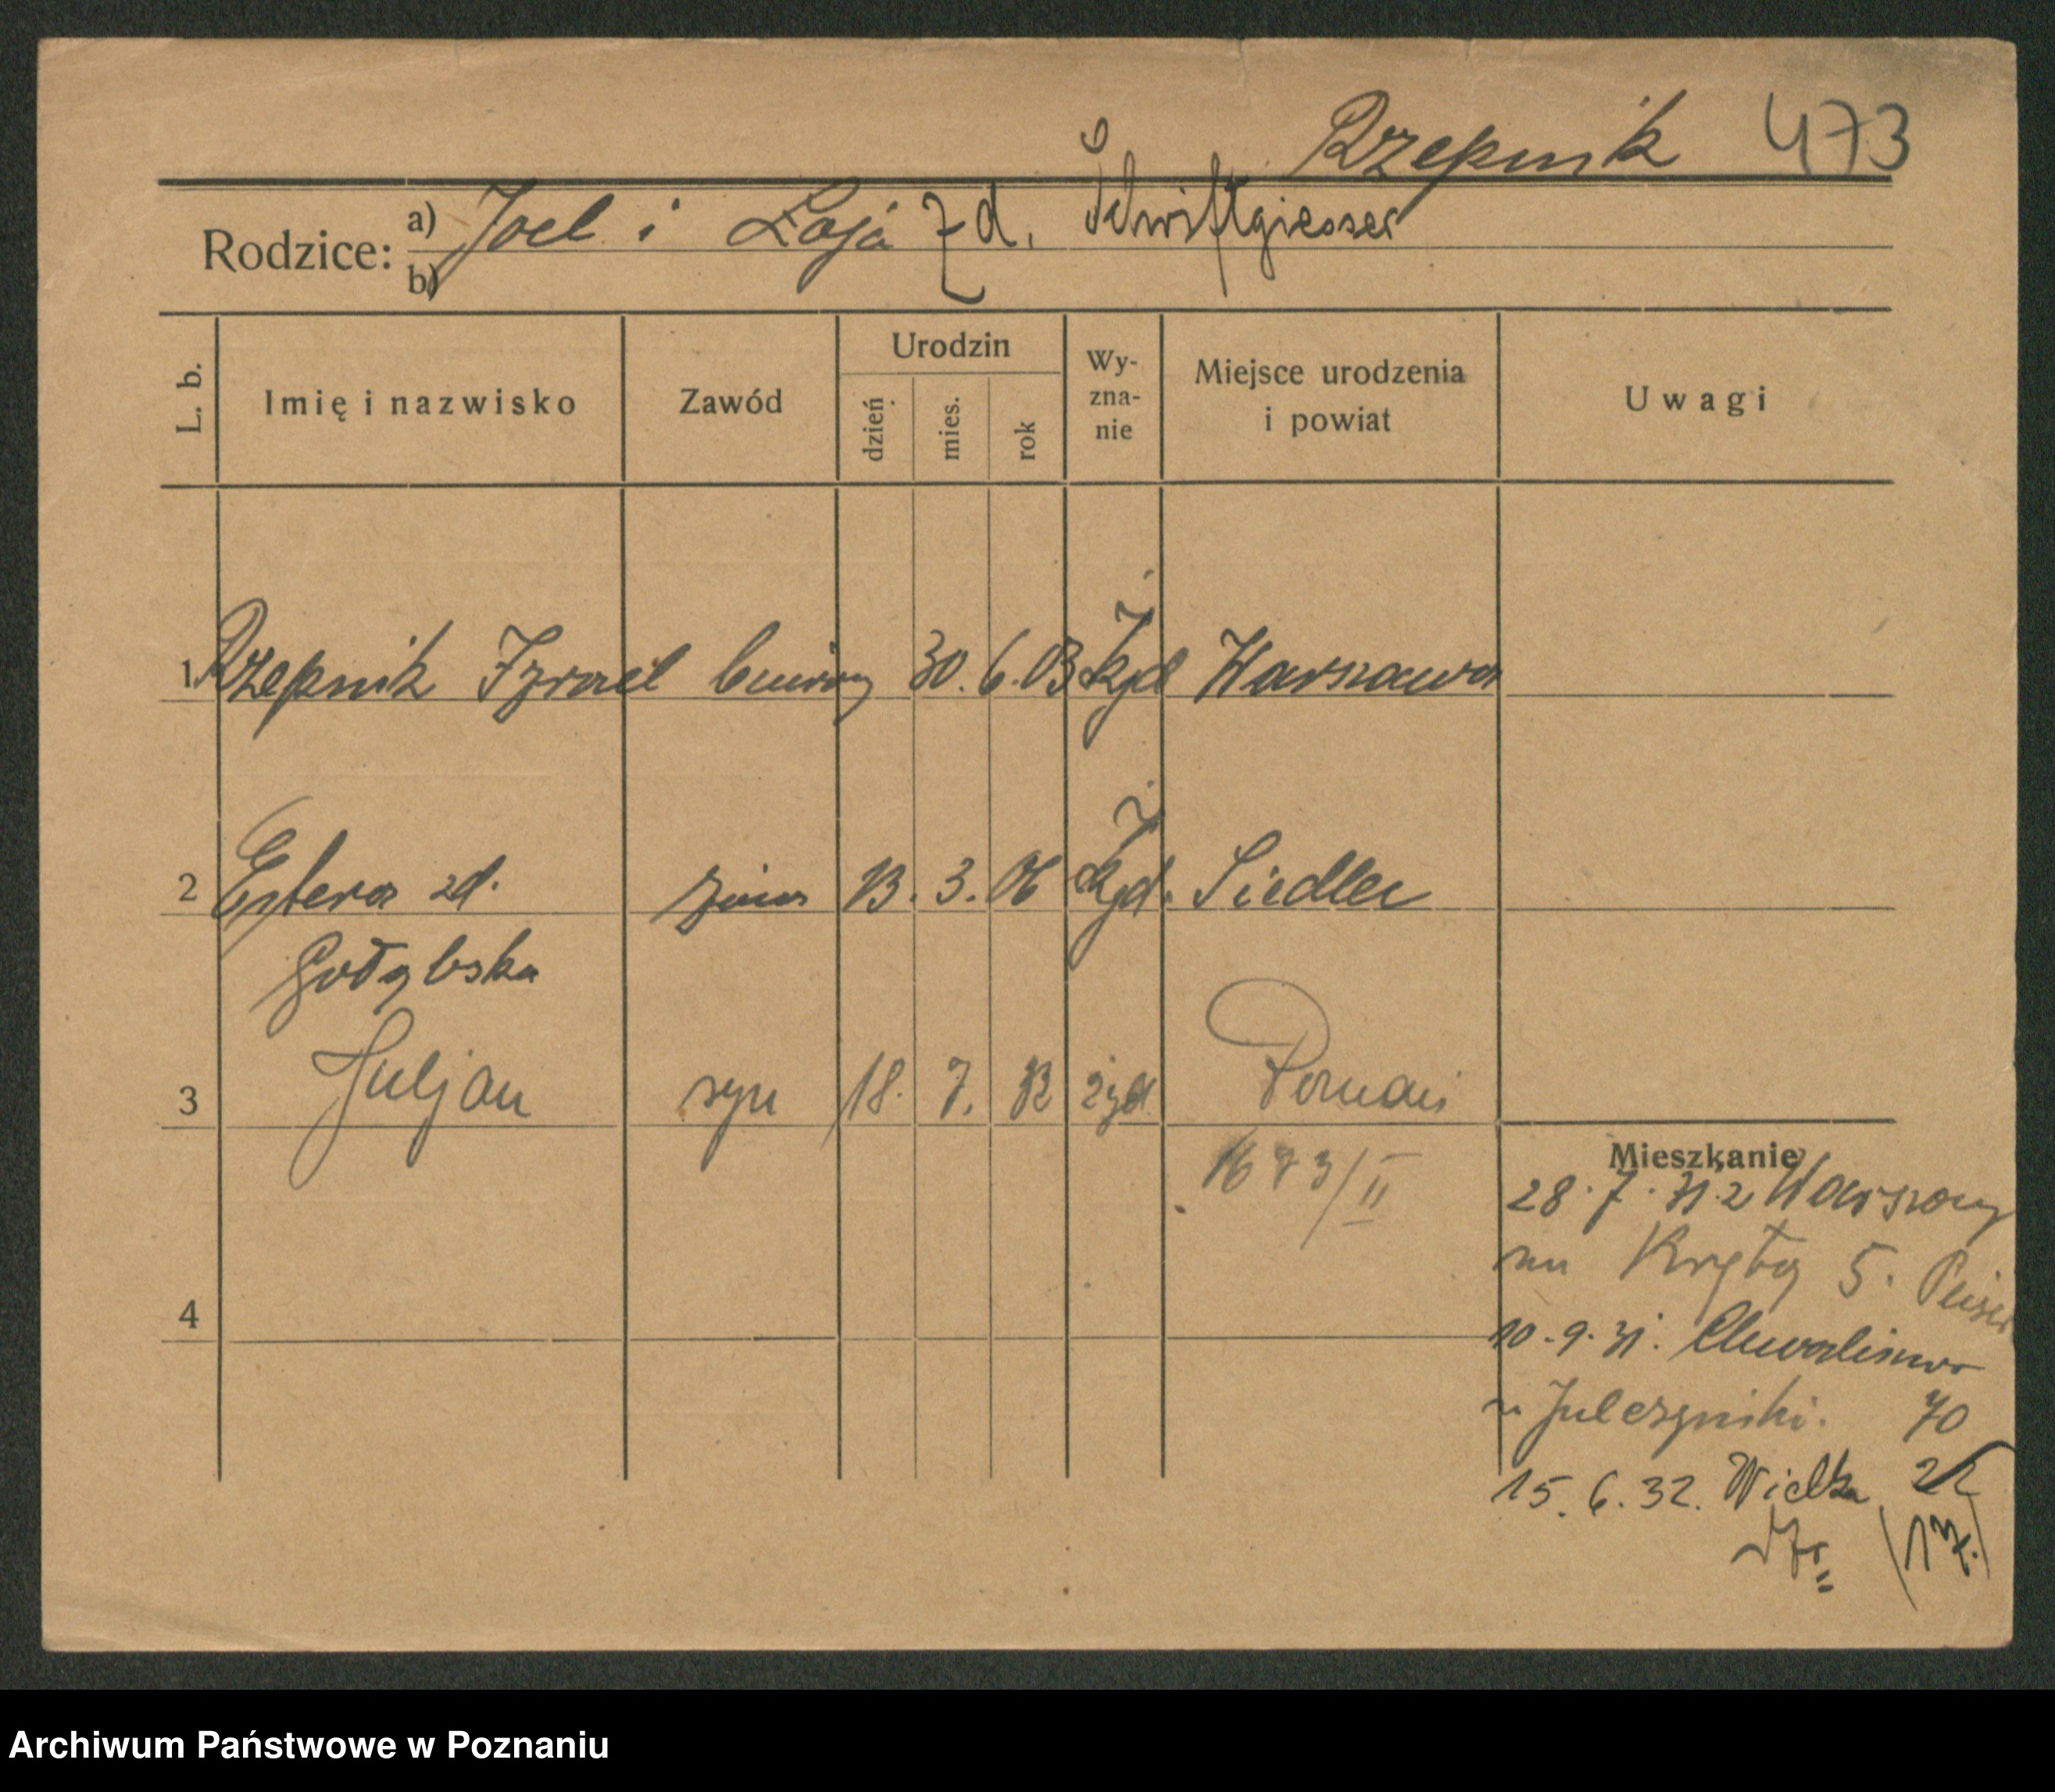 Rzepnik 473
Rodzice: a) Joel i Łaja z d. Schriftgiesser
b)
L. b.
Imię i nazwisko
Zawód
Urodzin
dzień
mies.
rok
Wy-
zna-
nie
Miejsce urodzenia
i powiat
Uwagi
1 Rzepnik Izrael 30. 6. 03 Żyd Warszawa
2 Estera zd. żona 13. 3. 06 Żyd. Siedlce
Gołąbska
3 Juljan syn 18. 7. 32 żyd Poznań
1673/II
4
Mieszkanie
28. 7. 31. z Warszawy
na Kręta 5. Peiser
10. 9. 31. Chwaliszewo
70
15. 6. 32. Wielka 22
Archiwum Państwowe w Poznaniu